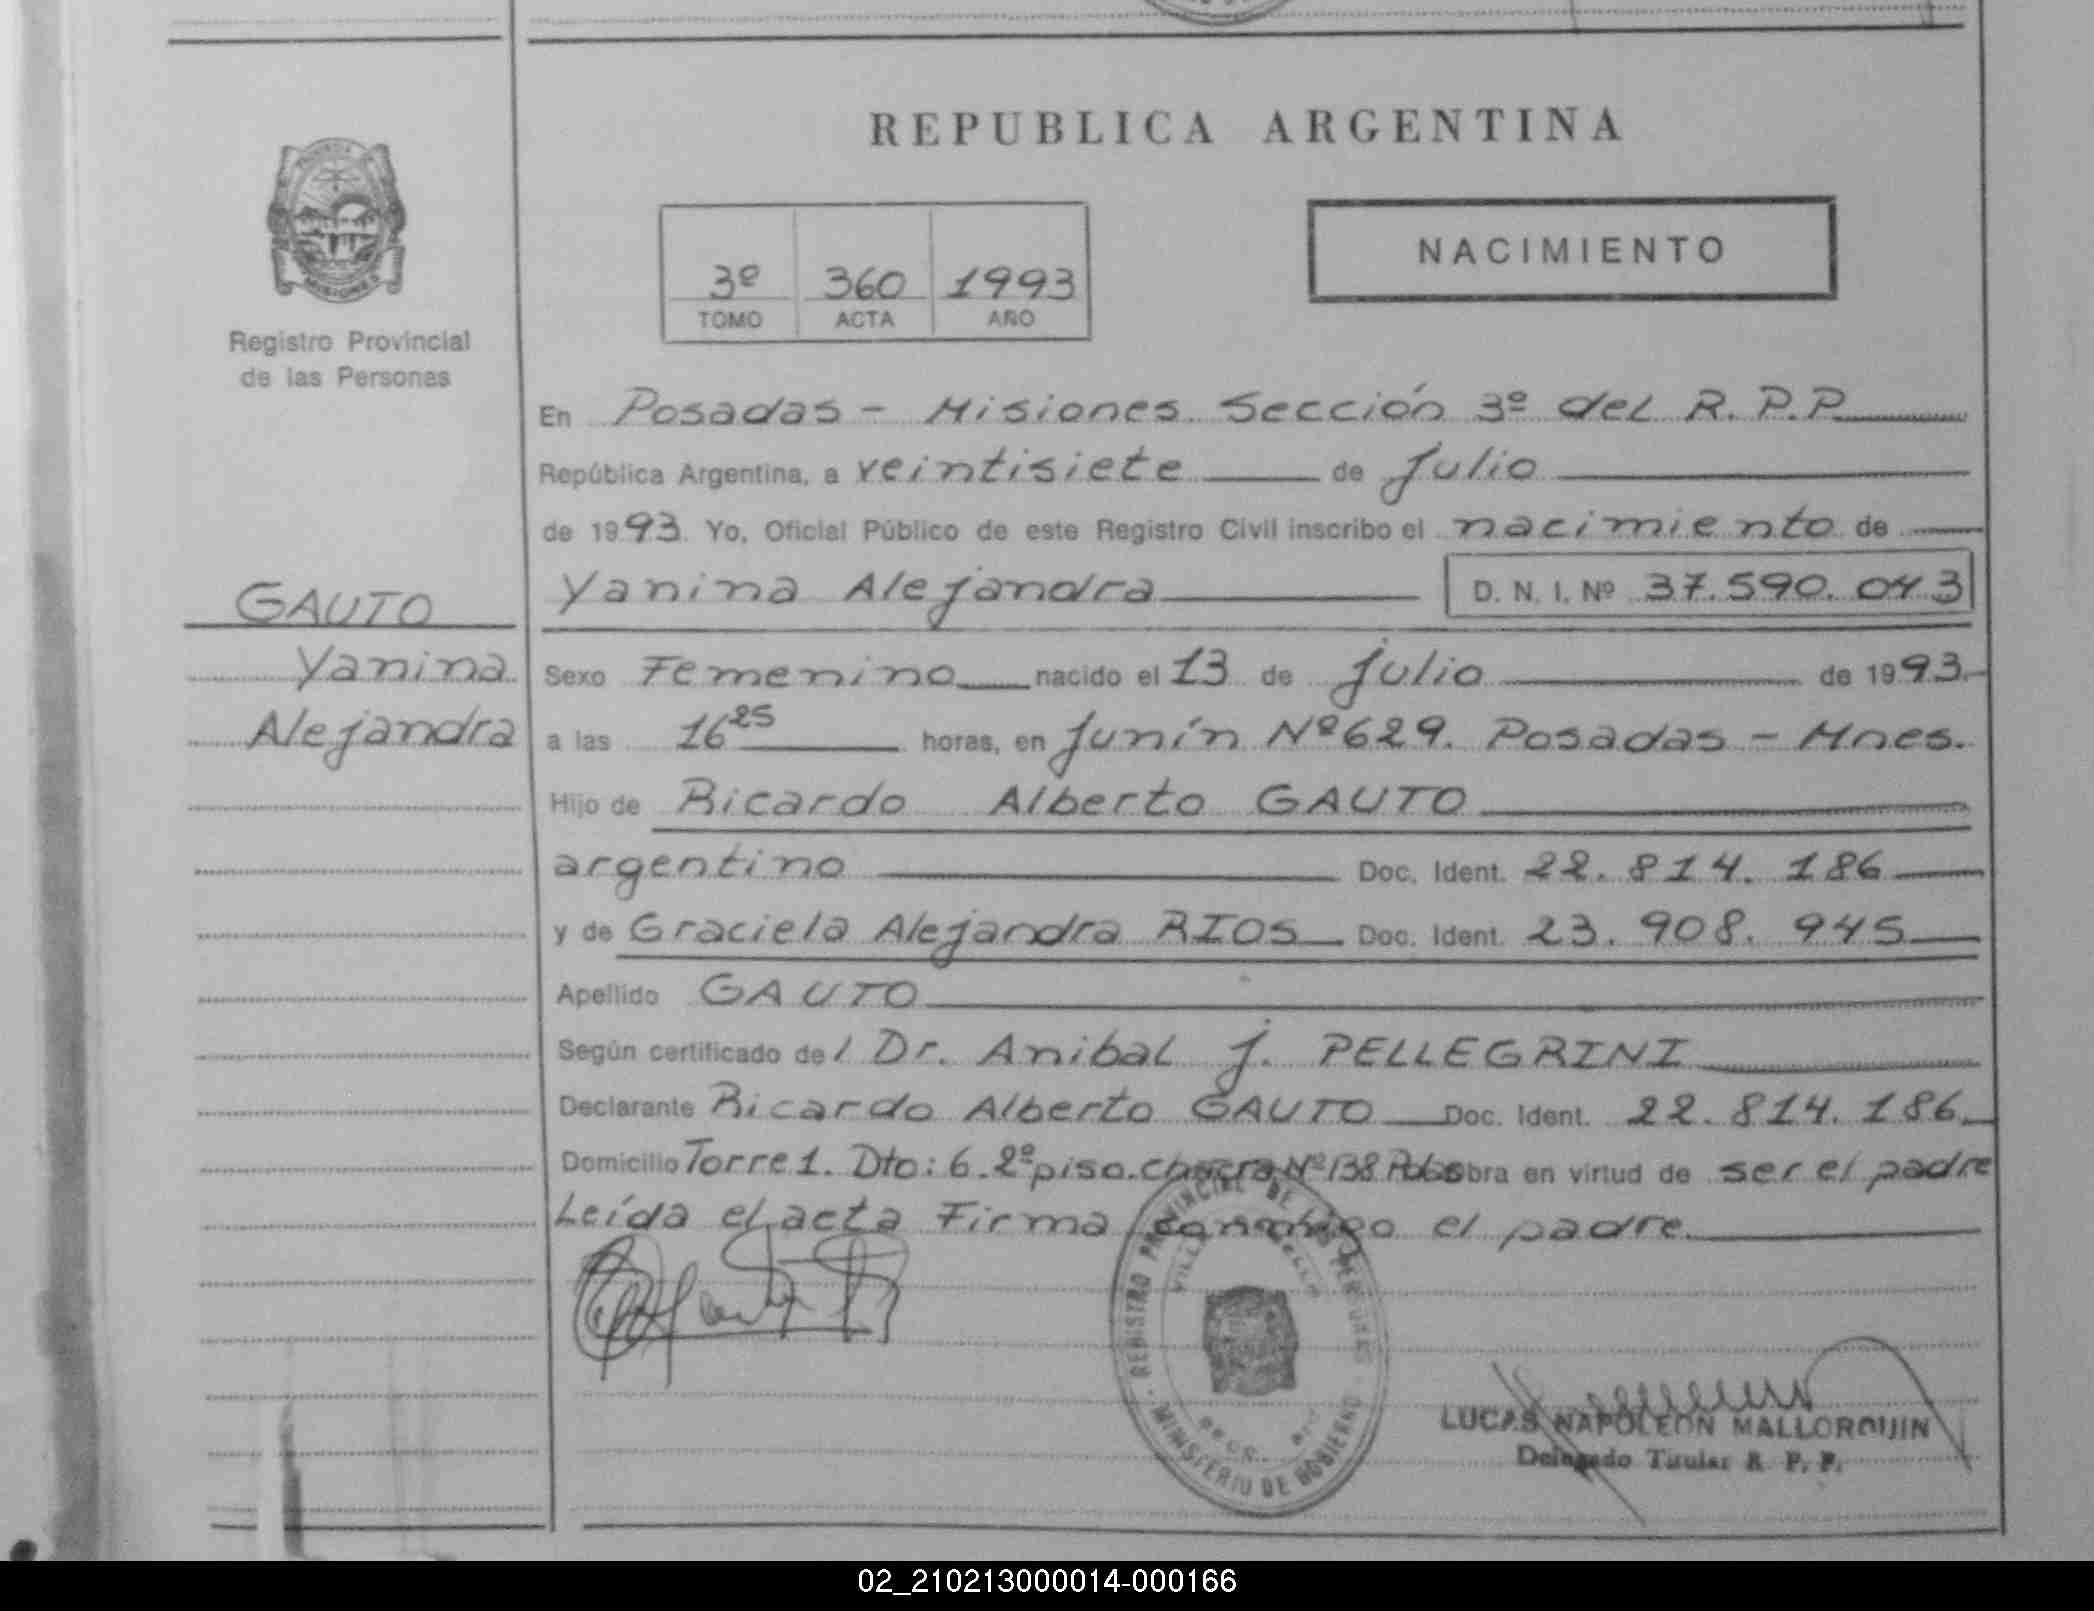 REPUBLICA ARGENTINA
NACIMIENTO
3º 360 1993
TOMO ACTA AÑO
Registro Provincial
de las Personas
En Posadas - Misiones Sección 3º del R. P. P.
República Argentina, a veintisiete de Julio
de 1993. Yo, Oficial Público de este Registro Civil inscribo el nacimiento de
GAUTO
Yanina
Alejandra
Yanina Alejandra D. N. I. Nº 37.590.043
Sexo Femenino nacido el 13 de Julio de 1993.
a las 16 25 horas, en Junín Nº 629. Posadas - Mnes.
Hijo de Ricardo Alberto GAUTO
argentino Doc. Ident. 22.814.186
y de Graciela Alejandra RIOS Doc. Ident. 23.908.945
Apellido GAUTO
Según certificado del Dr. Anibal J. PELLEGRINI
Declarante Ricardo Alberto GAUTO Doc. Ident. 22.814.186
Domicilio Torre 1. Dto: 6. 2º piso. Chacra Nº 138 obra en virtud de ser el padre
Leída el acta Firma conmigo el padre.
REGISTRO PROVINCIAL DE LAS PERSONAS
MINISTERIO DE GOBIERNO
LUCAS NAPOLEON MALLORQUIN
Delegado Titular R. P. P.
02_210213000014-000166